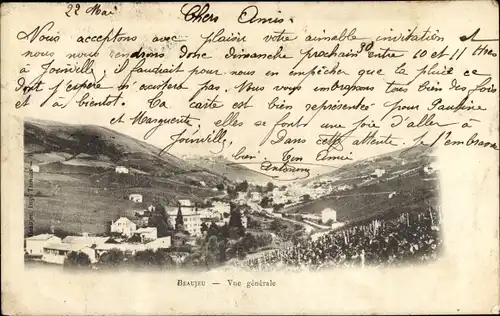 22 Mai
Chers Amis.
Nous acceptons avec plaisir votre aimable invitation et
nous nous rendrons donc dimanche prochain 30 entre 10 et 11 Hres
à Joinville, il faudrait pour nous en empêcher que la pluie ce
dont j'espère n'existera pas. Nous vous embrassons tous bien des fois
et à bientôt. Ta carte est bien représentée pour Pauline
et Marguerite, elles se font une joie d'aller à
Joinville. Dans cette attente je t'embrasse
bien. Ton Amie
BEAUJEU — Vue générale